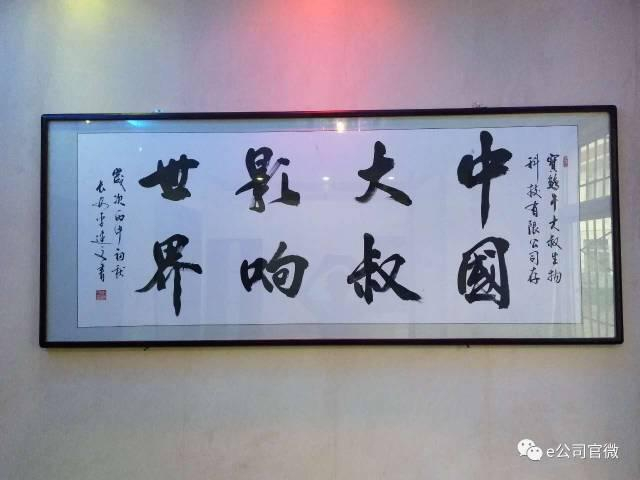 寶雞牛大叔生物
科技有限公司存
中國
大叔
影响
世界
歲次丙申初秋
长安李连文书
e公司官微